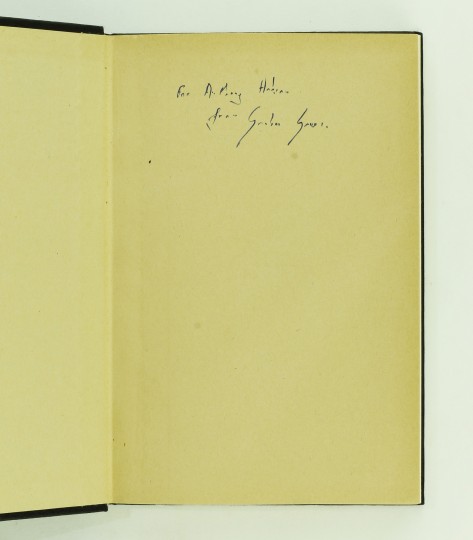 For Anthony Hobson
from Graham Greene.